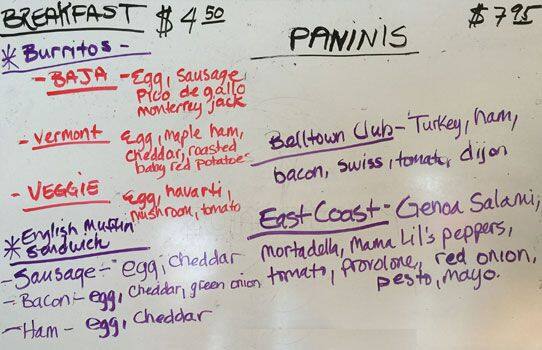 BREAKFAST $4.50
* Burritos -
- BAJA - Egg, Sausage,
Pico de gallo
monterrey jack
- Vermont Egg, maple ham,
cheddar, roasted
baby red potatoes
- VEGGIE Egg, havarti,
mushroom, tomato
* English Muffin
Sandwich
- Sausage - egg, cheddar
- Bacon - egg, cheddar, green onion
- Ham - egg, cheddar
PANINIS $7.95
Belltown Club - Turkey, ham,
bacon, swiss, tomato, dijon
East Coast - Genoa Salami,
mortadella, Mama Lil's peppers,
tomato, provolone, red onion,
pesto, mayo.